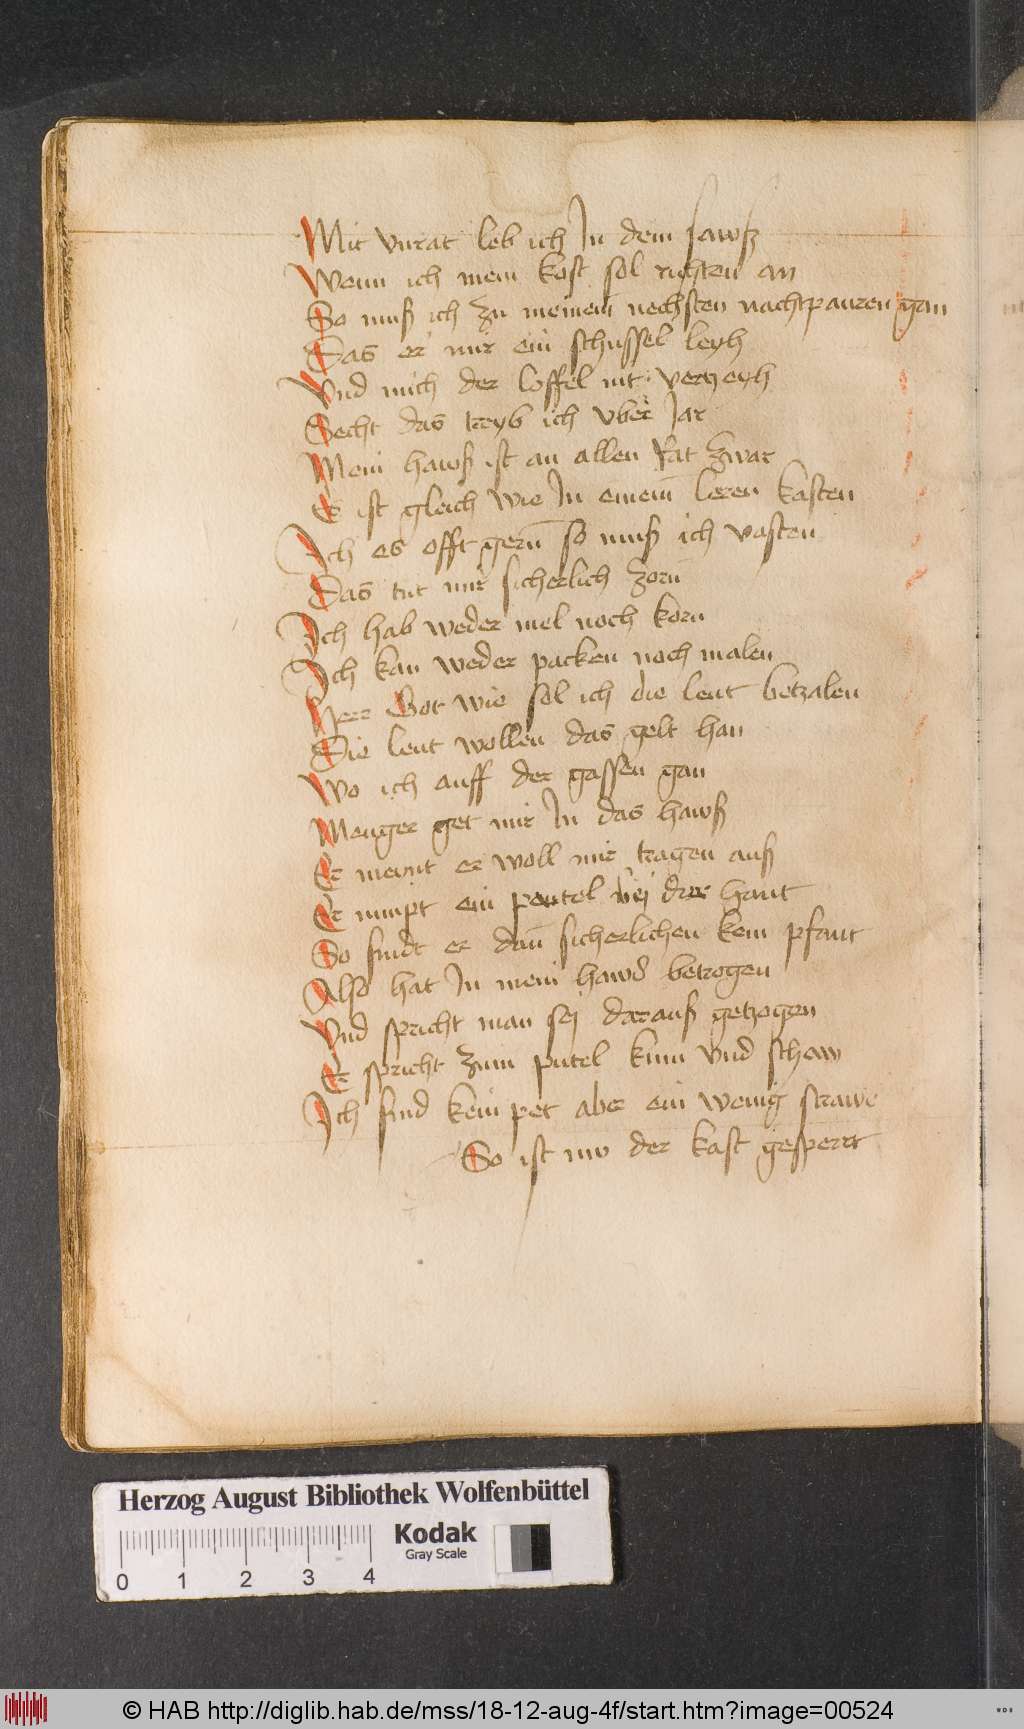 Mit vnrat leb ich In dem sawß
Wenn ich mein kost sol richten an
So muß ich zu meinem nechsten nachtpauren gan
Das er mir ein schussel leyh
Vnd mich der loffel nit verzeyh
Secht das treyb ich vber Jar
Mein hawß ist an allen Rat zwar
Es ist gleich wie In einem leren kasten
Ich es offt gern so muß ich vasten
Das tut mir sicherlich zorn
Ich hab weder mel noch korn
Ich kan weder packen noch malen
Herr Got wie sol ich die leut betzalen
Die leut wollen das gelt han
Wo ich auff der gassen gan
Menger get mir In das hawß
Er meynt er woll mir tragen auß
Er nimpt ein peutel bej der hant
So findt er dan sicherlichen kein pfant
Also hat In mein hawß betrogen
Vnd spricht man sej darauß getzogen
Er spricht zum putel kum vnd schaw
Ich find kein pet aber ein wenig strawe
So ist nw der kast gesperrt
Herzog August Bibliothek Wolfenbüttel
Kodak
Gray Scale
0 1 2 3 4
© HAB http://diglib.hab.de/mss/18-12-aug-4f/start.htm?image=00524